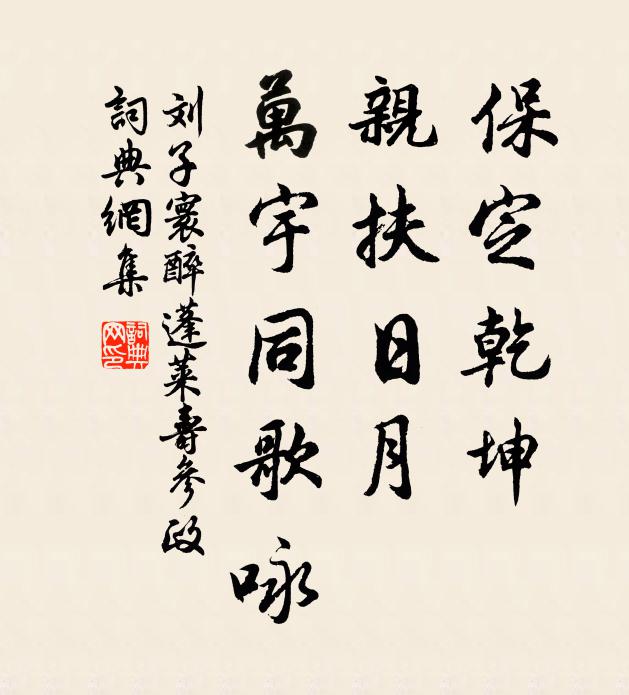 保定乾坤
親扶日月
萬宇同歌咏
刘子寰醉蓬莱壽參政
詞典網集
詞典網印